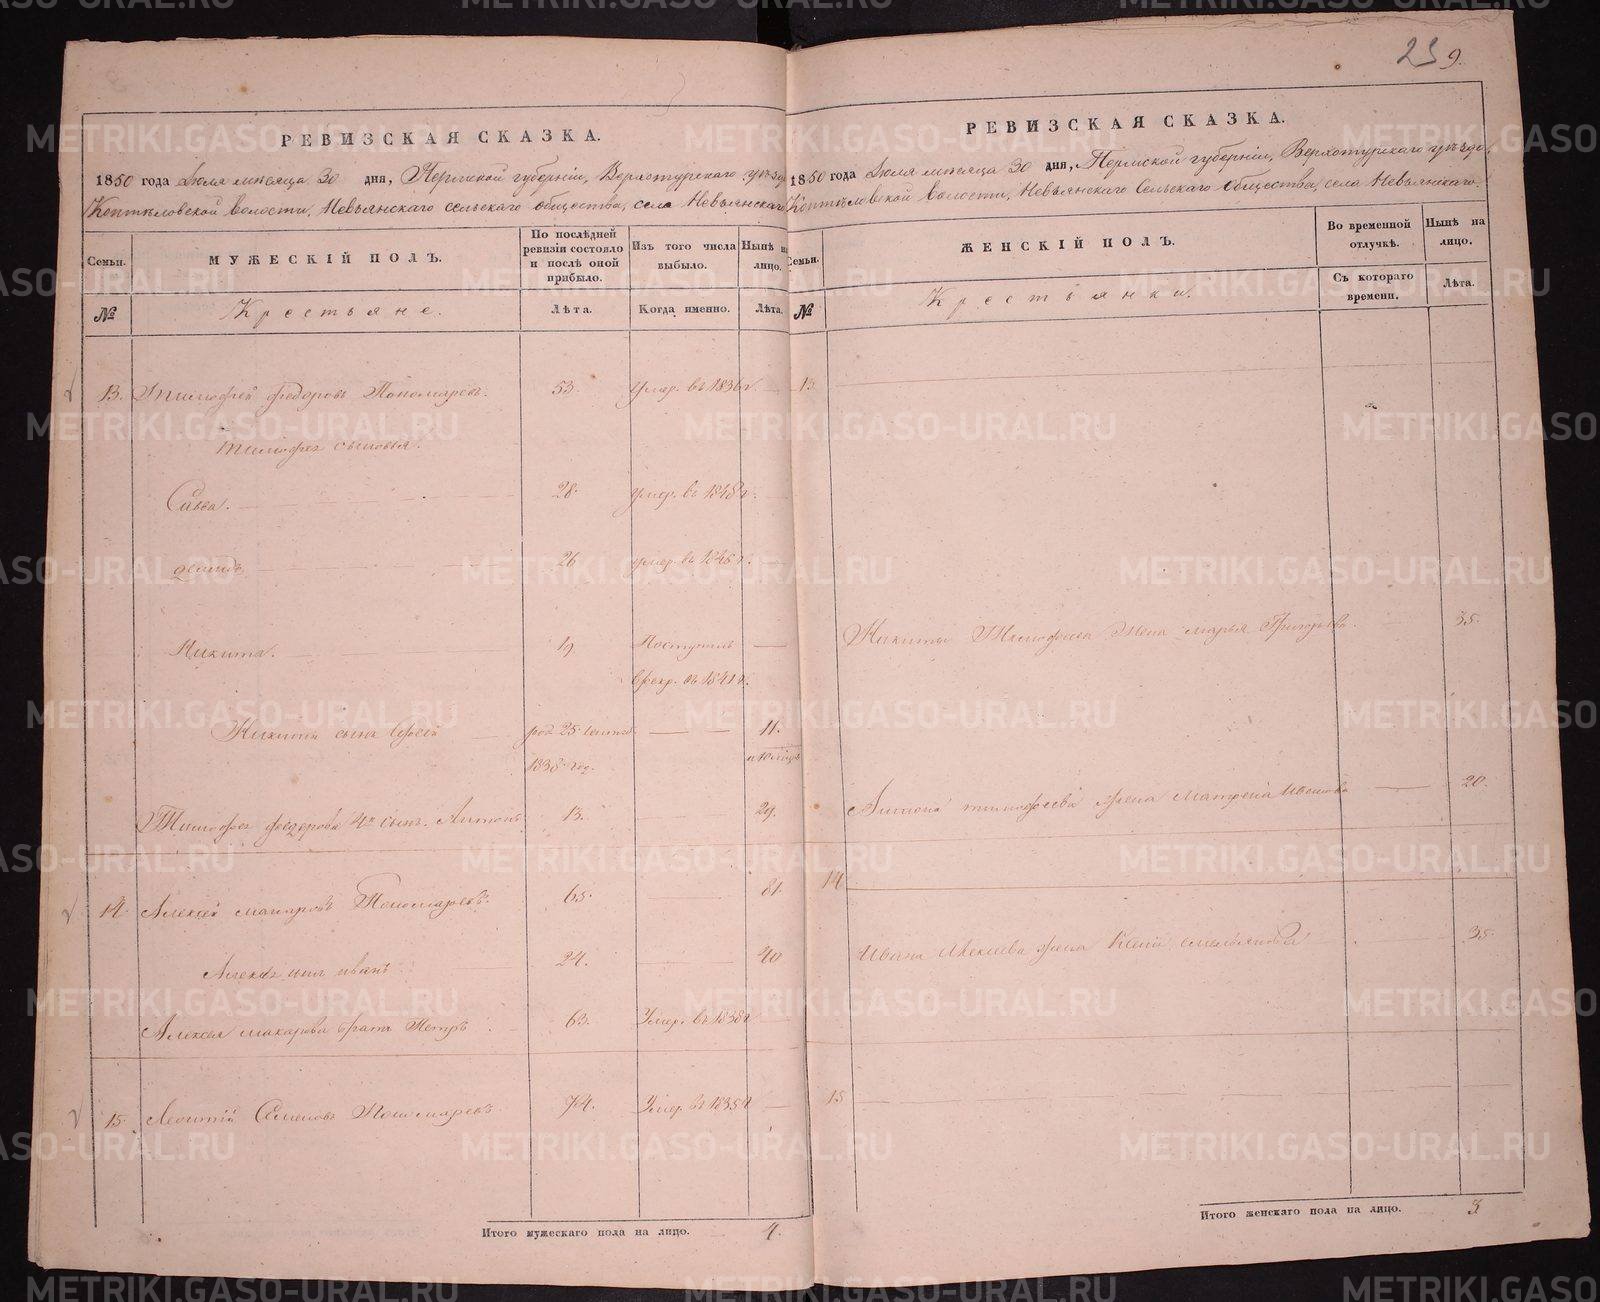 23 9.
РЕВИЗСКАЯ СКАЗКА.
1850 года Июля месяца 30 дня, Пермской губернии, Верхотурскаго уезда
Коптѣловской волости, Невьянскаго сельскаго общества, села Невьянскаго
Семьи. МУЖЕСКІЙ ПОЛЪ. По послѣдней ревизіи состояло и послѣ оной прибыло. Изъ того числа выбыло. Нынѣ на лицо.
№ Крестьяне. Лѣта. Когда именно. Лѣта.
13. Тимофей Федоровъ Пономаревъ. 53. Умер. въ 1836 г.
Тимофея сыновья.
Савва. 28. умер. въ 1848 г.
26 умер. въ 1846 г.
Никита. 19 Поступилъ
в рекр. въ 1841 г.
Никиты сынъ род. 25 Сентяб. 11.
1838 год.
Тимофея Федорова 4й сынъ Антонъ 13. 29.
14. Алексей Макаровъ Пономаревъ. 65. 81.
Алексея сынъ Иванъ 24. 40
Алексея Макарова братъ Петръ 63. Умер. въ 1838 г
15. Леонтій Семеновъ Пономаревъ 74. Умер. въ 1835 г
Итого мужескаго пола на лицо. 4.
РЕВИЗСКАЯ СКАЗКА.
1850 года Июля месяца 30 дня, Пермской губерніи, Верхотурскаго уезда,
Коптѣловской волости, Невьянскаго Сельскаго общества, села Невьянскаго.
Семьи. ЖЕНСКІЙ ПОЛЪ. Во временной отлучкѣ. Нынѣ на лицо.
№ Крестьянки. Съ котораго времени. Лѣта.
13.
Никиты Тимофеева Жена Марья Григорьева. 35.
Антона Тимофеева жена Матрена Иванова 20.
14
Ивана Алексеева жена Емельянова 35.
15
Итого женскаго пола на лицо. 3
METRIKI.GASO-URAL.RU